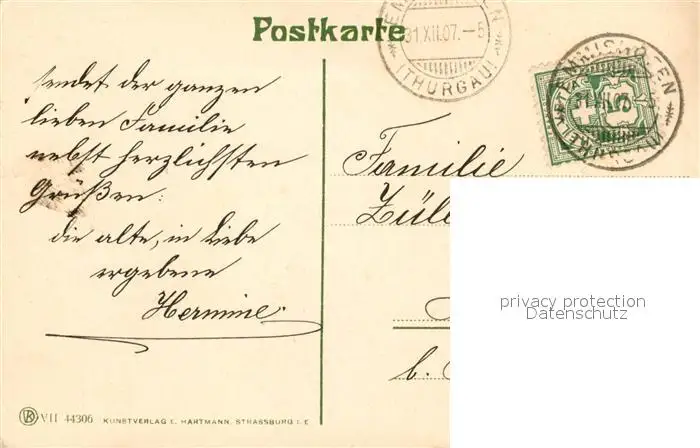 Postkarte
31 XII.07.–5
(THURGAU)
sendet der ganzen
lieben Familie
nebst herzlichsten
Grüßen:
die alte, in Liebe
ergebene
Hermine.
Familie
Zül
b.
privacy protection
Datenschutz
VII 44306 KUNSTVERLAG E. HARTMANN, STRASSBURG I. E